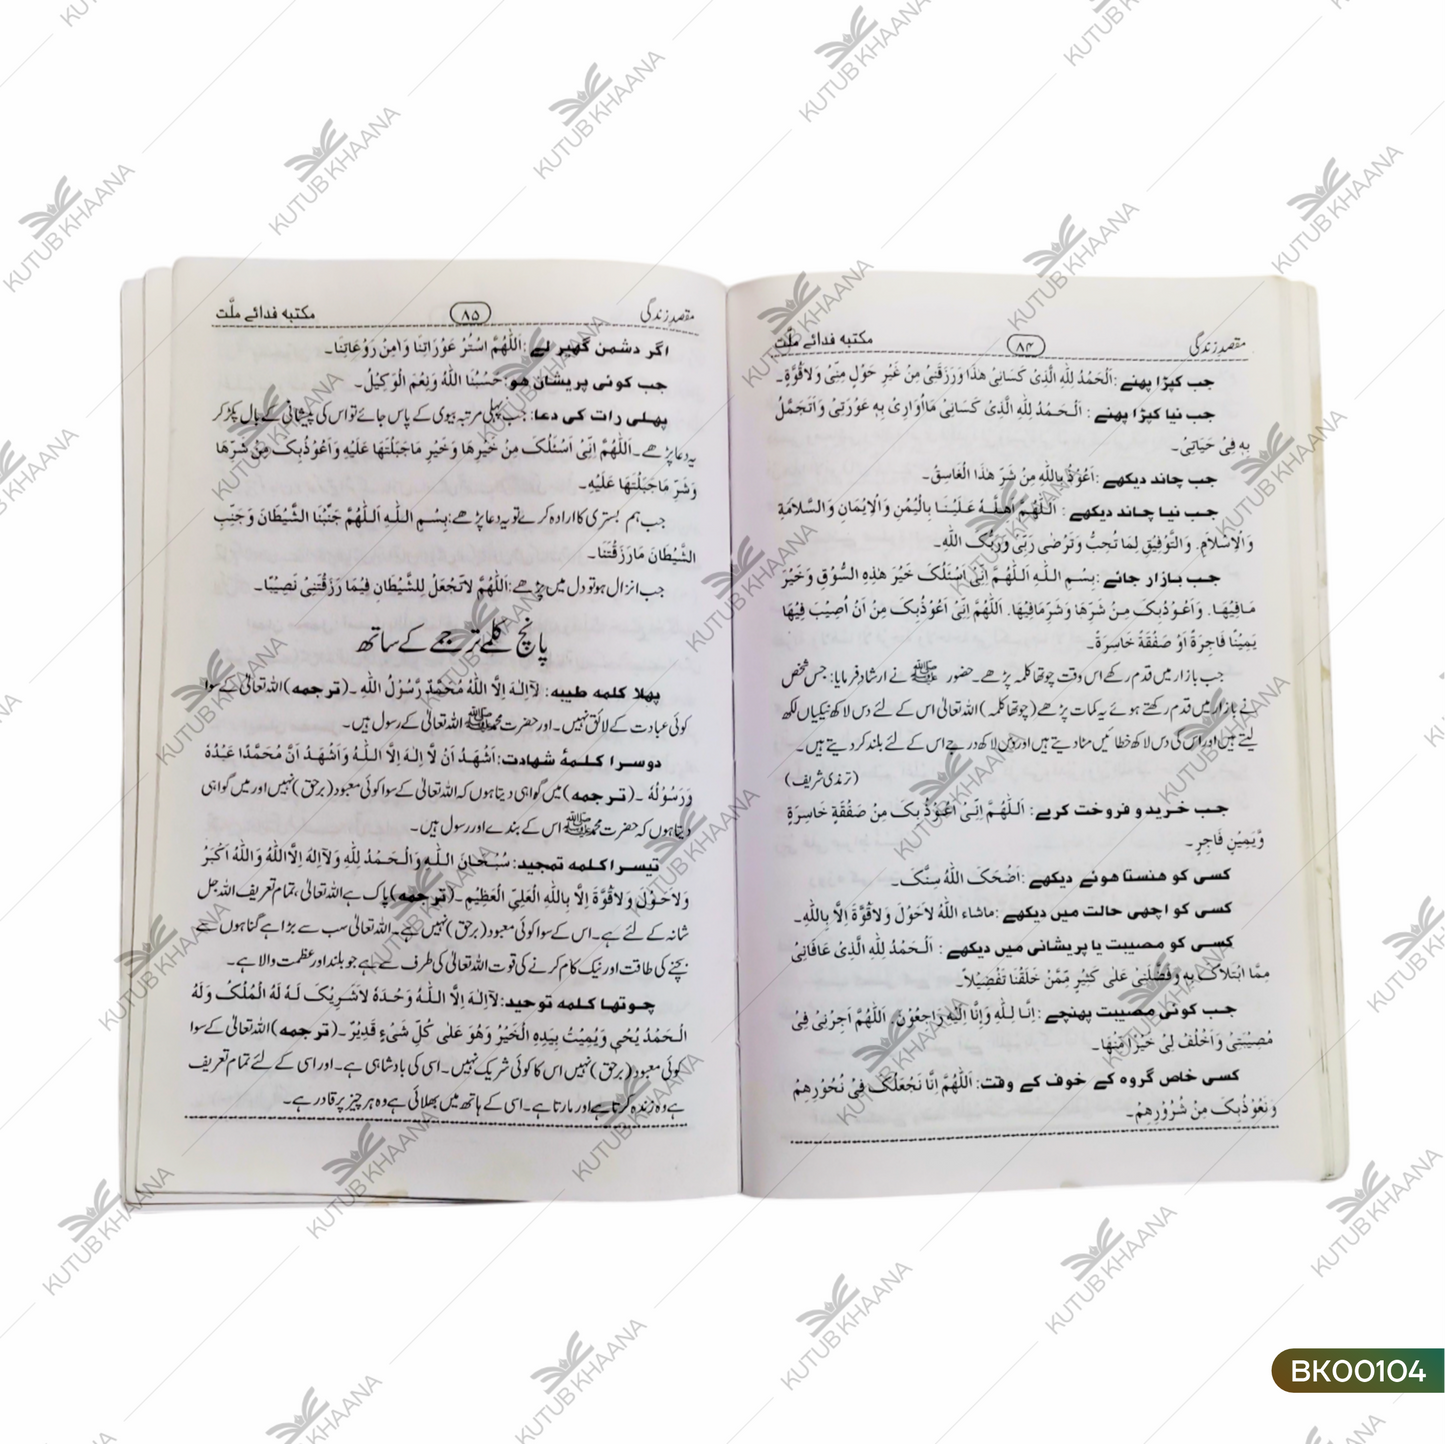 مقصدِ زندگی ۸۴ مکتبہ فدائے ملّت
جب کپڑا پہنے: اَلْحَمْدُ لِلّٰہِ الَّذِیْ کَسَانِیْ ھٰذَا وَرَزَقَنِیْ مِنْ غَیْرِ حَوْلٍ مِنِّیْ وَلَاقُوَّۃٍ۔
جب نیا کپڑا پہنے: اَلْحَمْدُ لِلّٰہِ الَّذِیْ کَسَانِیْ مَااُوَارِیْ بِہٖ عَوْرَتِیْ وَاَتَجَمَّلُ
بِہٖ فِیْ حَیَاتِیْ۔
جب چاند دیکھے: اَعُوْذُ بِاللّٰہِ مِنْ شَرِّ ھٰذَا الْغَاسِقُ۔
جب نیا چاند دیکھے: اَللّٰھُمَّ اَھِلَّہٗ عَلَیْنَا بِالْیُمْنِ وَالْاِیْمَانِ وَالسَّلَامَۃِ
وَالْاِسْلَامِ. وَالتَّوْفِیْقِ لِمَا تُحِبُّ وَتَرْضٰی رَبِّیْ وَرَبُّکَ اللّٰہِ۔
جب بازار جائے: بِسْمِ اللّٰہِ اَللّٰھُمَّ اِنِّیْ اَسْئَلُکَ خَیْرَ ھٰذِہِ السُّوْقِ وَخَیْرَ
مَافِیْھَا. وَاَعُوْذُبِکَ مِنْ شَرِّھَا وَشَرِّمَافِیْھَا. اَللّٰھُمَّ اِنِّیْ اَعُوْذُبِکَ مِنْ اَنْ اُصِیْبَ فِیْھَا
یَمِیْنًا فَاجِرَۃً اَوْ صَفْقَۃً خَاسِرَۃً۔
جب بازار میں قدم رکھے اس وقت چوتھا کلمہ پڑھے۔ حضور ﷺ نے ارشاد فرمایا: جس شخص
نے بازار میں قدم رکھتے ہوئے یہ کلمات پڑھے (چوتھا کلمہ) اللہ تعالیٰ اس کے لئے دس لاکھ نیکیاں لکھ
لیتے ہیں اور اس کی دس لاکھ خطائیں مٹا دیتے ہیں اور دس لاکھ درجے اس کے لئے بلند کر دیتے ہیں۔
(ترمذی شریف)
جب خرید و فروخت کرے: اَللّٰھُمَّ اِنِّیْ اَعُوْذُ بِکَ مِنْ صَفْقَۃٍ خَاسِرَۃٍ
وَّیَمِیْنٍ فَاجِرٍ۔
کسی کو ھنستا ھوئے دیکھے: اَضْحَکَ اللّٰہُ سِنَّکَ۔
کسی کو اچھی حالت میں دیکھے: ماشاء اللّٰہُ لَاحَوْلَ وَلَاقُوَّۃَ اِلَّا بِاللّٰہِ۔
کسی کو مصیبت یا پریشانی میں دیکھے: اَلْحَمْدُ لِلّٰہِ الَّذِیْ عَافَانِیْ
مِمَّا ابْتَلَاکَ بِہٖ وَفَضَّلَنِیْ عَلٰی کَثِیْرٍ مِّمَّنْ خَلَقْنَا تَفْضِیْلًا۔
جب کوئی مصیبت پھنچے: اِنَّا لِلّٰہِ وَاِنَّا اِلَیْہِ رَاجِعُوْنَ. اَللّٰھُمَّ اَجِرْنِیْ فِیْ
مُصِیْبَتِیْ وَاخْلُفْ لِیْ خَیْرًا مِّنْھَا۔
کسی خاص گروہ کے خوف کے وقت: اَللّٰھُمَّ اِنَّا نَجْعَلُکَ فِیْ نُحُوْرِھِمْ
وَنَعُوْذُبِکَ مِنْ شُرُوْرِھِمْ۔
مقصدِ زندگی ۸۵ مکتبہ فدائے ملّت
اگر دشمن گھیر لے: اَللّٰھُمَّ اسْتُرْ عَوْرَاتِنَا وَاٰمِنْ رَوْعَاتِنَا۔
جب کوئی پریشان ھو: حَسْبُنَا اللّٰہُ وَنِعْمَ الْوَکِیْلُ۔
پھلی رات کی دعا: جب پہلی مرتبہ بیوی کے پاس جائے تو اس کی پیشانی کے بال پکڑ کر
یہ دعا پڑھے۔ اَللّٰھُمَّ اِنِّیْ اَسْئَلُکَ مِنْ خَیْرِھَا وَخَیْرِ مَاجَبَلْتَھَا عَلَیْہِ وَاَعُوْذُبِکَ مِنْ شَرِّھَا
وَشَرِّ مَاجَبَلْتَھَا عَلَیْہِ۔
جب ہم بستری کا ارادہ کرے تو یہ دعا پڑھے: بِسْمِ اللّٰہِ اَللّٰھُمَّ جَنِّبْنَا الشَّیْطَانَ وَجَنِّبِ
الشَّیْطَانَ مَارَزَقْتَنَا۔
جب انزال ہو تو دل میں پڑھے: اَللّٰھُمَّ لَاتَجْعَلْ لِلشَّیْطَانِ فِیْمَا رَزَقْتَنِیْ نَصِیْبًا۔
پانچ کلمے ترجمے کے ساتھ
پھلا کلمہ طیبہ: لَآاِلٰہَ اِلَّا اللّٰہُ مُحَمَّدٌ رَّسُوْلُ اللّٰہِ۔ (ترجمہ) اللہ تعالیٰ کے سوا
کوئی عبادت کے لائق نہیں۔ اور حضرت محمد ﷺ اللہ تعالیٰ کے رسول ہیں۔
دوسرا کلمۂ شھادت: اَشْھَدُ اَنْ لَّا اِلٰہَ اِلَّا اللّٰہُ وَاَشْھَدُ اَنَّ مُحَمَّدًا عَبْدُہٗ
وَرَسُوْلُہٗ۔ (ترجمہ) میں گواہی دیتا ہوں کہ اللہ تعالیٰ کے سوا کوئی معبود (برحق) نہیں اور میں گواہی
دیتا ہوں کہ حضرت محمد ﷺ اس کے بندے اور رسول ہیں۔
تیسرا کلمہ تمجید: سُبْحَانَ اللّٰہِ وَالْحَمْدُ لِلّٰہِ وَلَآاِلٰہَ اِلَّااللّٰہُ وَاللّٰہُ اَکْبَرُ
وَلَاحَوْلَ وَلَاقُوَّۃَ اِلَّا بِاللّٰہِ الْعَلِیِّ الْعَظِیْمِ۔ (ترجمہ) پاک ہے اللہ تعالیٰ، تمام تعریف اللہ جل
شانہ کے لئے ہے۔ اس کے سوا کوئی معبود (برحق) نہیں ہے۔ اللہ تعالیٰ سب سے بڑا ہے گناہوں سے
بچنے کی طاقت اور نیک کام کرنے کی قوت اللہ تعالیٰ کی طرف سے ہے جو بلند اور عظمت والا ہے۔
چوتھا کلمہ توحید: لَآاِلٰہَ اِلَّا اللّٰہُ وَحْدَہٗ لَاشَرِیْکَ لَہٗ لَہُ الْمُلْکُ وَلَہُ
الْحَمْدُ یُحْیٖ وَیُمِیْتُ بِیَدِہِ الْخَیْرُ وَھُوَ عَلٰی کُلِّ شَیْءٍ قَدِیْرٌ۔ (ترجمہ) اللہ تعالیٰ کے سوا
کوئی معبود (برحق) نہیں اس کا کوئی شریک نہیں۔ اسی کی بادشاہی ہے۔ اور اسی کے لئے تمام تعریف
ہے وہ زندہ کرتا ہے اور مارتا ہے۔ اسی کے ہاتھ میں بھلائی ہے وہ ہر چیز پر قادر ہے۔
KUTUB KHAANA
BK00104